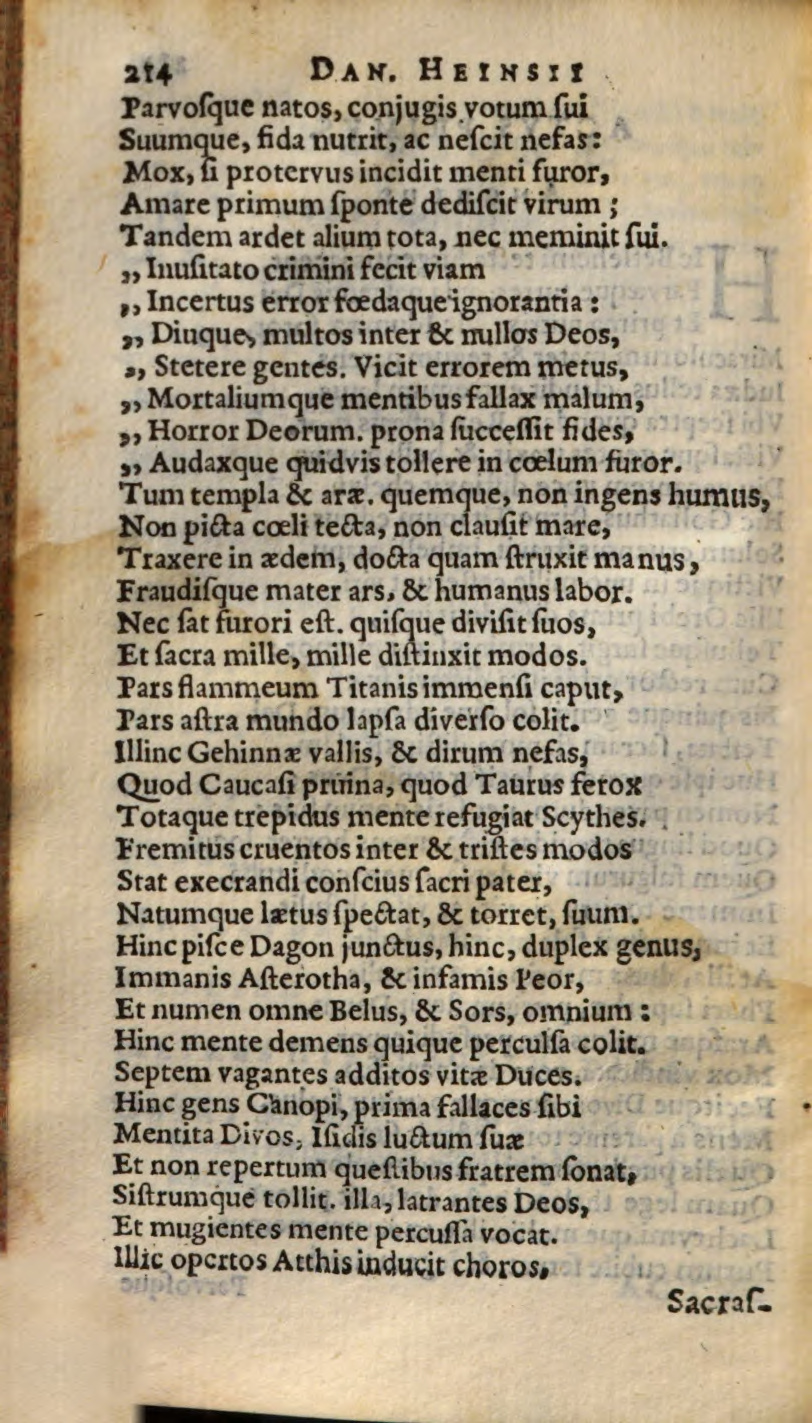 214 DAN. HEINSII
Parvoſque natos, conjugis votum ſui
Suumque, fida nutrit, ac neſcit nefas:
Mox, ſi protervus incidit menti furor,
Amare primum ſponte dediſcit virum ;
Tandem ardet alium tota, nec meminit ſui.
,, Inuſitato crimini fecit viam
,, Incertus error fœdaque ignorantia :
,, Diuque, multos inter & nullos Deos,
,, Stetere gentes. Vicit errorem metus,
,, Mortaliumque mentibus fallax malum,
,, Horror Deorum. prona ſucceſſit fides,
,, Audaxque quidvis tollere in cœlum furor.
Tum templa & aræ. quemque, non ingens humus,
Non picta cœli tecta, non clauſit mare,
Traxere in ædem, docta quam ſtruxit manus,
Fraudiſque mater ars, & humanus labor.
Nec ſat furori eſt. quiſque diviſit ſuos,
Et ſacra mille, mille diſtinxit modos.
Pars flammeum Titanis immenſi caput,
Pars aſtra mundo lapſa diverſo colit.
Illinc Gehinnæ vallis, & dirum nefas,
Quod Caucaſi pruina, quod Taurus ferox
Totaque trepidus mente refugiat Scythes.
Fremitus cruentos inter & triſtes modos
Stat execrandi conſcius ſacri pater,
Natumque lætus ſpectat, & torret, ſuum.
Hinc piſce Dagon junctus, hinc, duplex genus,
Immanis Aſterotha, & infamis Peor,
Et numen omne Belus, & Sors, omnium :
Hinc mente demens quique perculſa colit.
Septem vagantes additos vitæ Duces.
Hinc gens Canopi, prima fallaces ſibi
Mentita Divos, Iſidis luctum ſuæ
Et non repertum queſtibus fratrem ſonat,
Siſtrumque tollit. illa, latrantes Deos,
Et mugientes mente percuſſa vocat.
Illic opertos Atthis inducit choros,
Sacraſ-